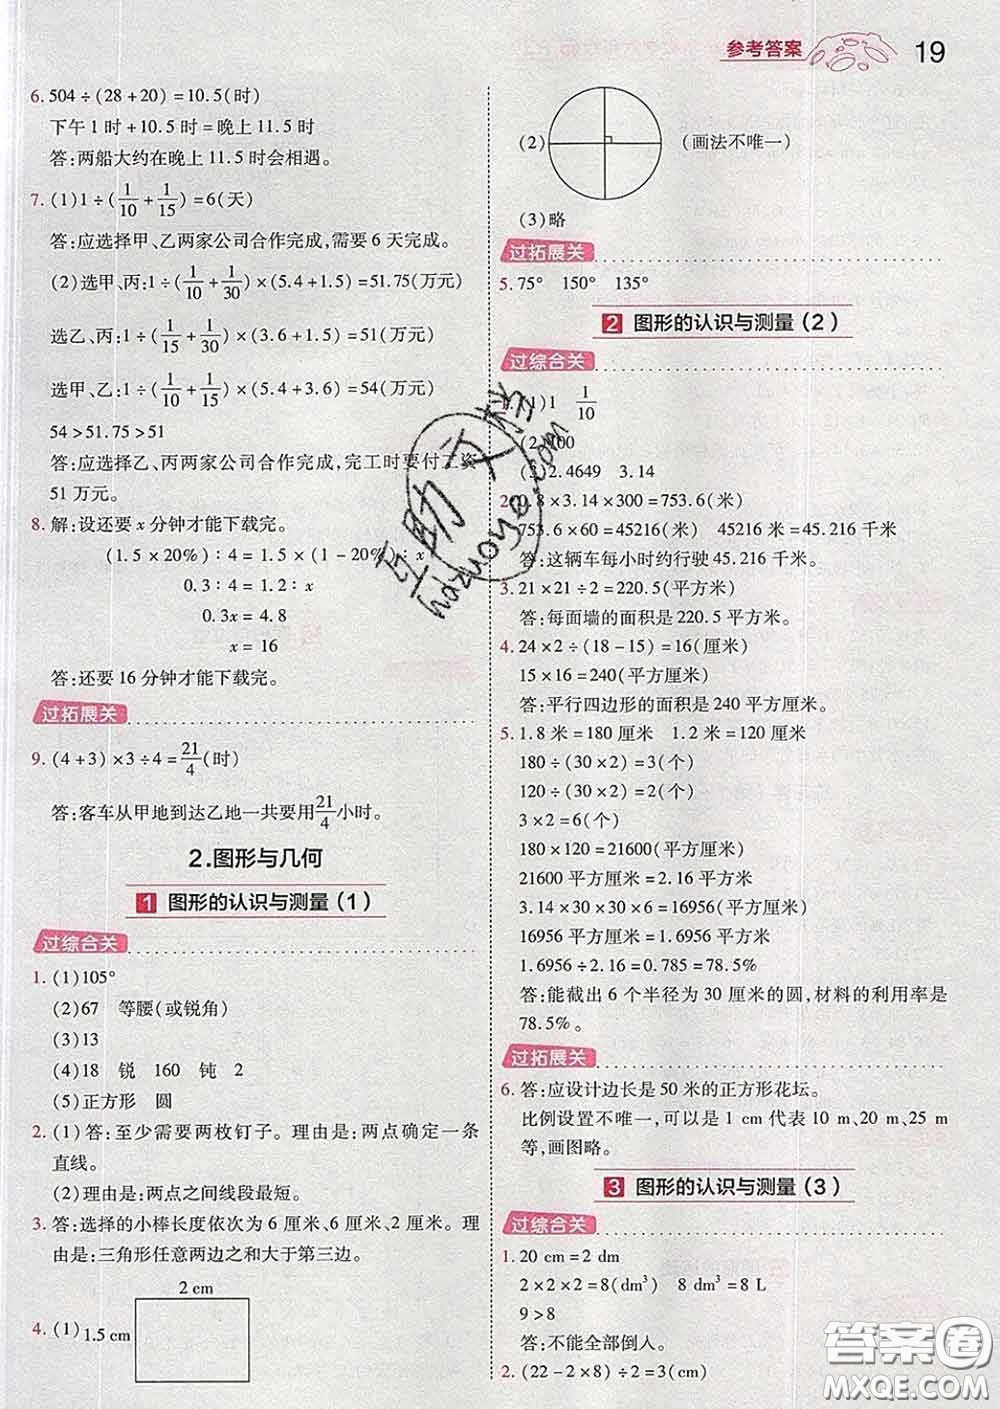 参考答案 19
6. 504÷(28+20)=10.5(时)
下午1时+10.5时=晚上11.5时
答:两船大约在晚上11.5时会相遇。
7. (1)1÷(1/10+1/15)=6(天)
答:应选择甲、乙两家公司合作完成,需要6天完成。
(2)选甲、丙:1÷(1/10+1/30)×(5.4+1.5)=51.75(万元)
选乙、丙:1÷(1/15+1/30)×(3.6+1.5)=51(万元)
选甲、乙:1÷(1/10+1/15)×(5.4+3.6)=54(万元)
54>51.75>51
答:应选择乙、丙两家公司合作完成,完工时要付工资
51万元。
8. 解:设还要x分钟才能下载完。
(1.5×20%):4=1.5×(1-20%):x
0.3:4=1.2:x
0.3x=4.8
x=16
答:还要16分钟才能下载完。
过拓展关
9. (4+3)×3÷4=21/4(时)
答:客车从甲地到达乙地一共要用21/4小时。
2.图形与几何
1 图形的认识与测量(1)
过综合关
1. (1)105°
(2)67 等腰(或锐角)
(3)13
(4)18 锐 160 钝 2
(5)正方形 圆
2. (1)答:至少需要两枚钉子。理由是:两点确定一条
直线。
(2)理由是:两点之间线段最短。
3. 答:选择的小棒长度依次为6厘米、6厘米、2厘米。理
由是:三角形任意两边之和大于第三边。
2 cm
4. (1) 1.5 cm
(2) (画法不唯一)
(3)略
过拓展关
5. 75° 150° 135°
2 图形的认识与测量(2)
过综合关
(1)1 1/10
(3)2.4649 3.14
.8×3.14×300=753.6(米)
753.6×60=45216(米) 45216米=45.216千米
答:这辆车每小时约行驶45.216千米。
3. 21×21÷2=220.5(平方米)
答:每面墙的面积是220.5平方米。
4. 24×2÷(18-15)=16(厘米)
15×16=240(平方厘米)
答:平行四边形的面积是240平方厘米。
5. 1.8米=180厘米 1.2米=120厘米
180÷(30×2)=3(个)
120÷(30×2)=2(个)
3×2=6(个)
180×120=21600(平方厘米)
21600平方厘米=2.16平方米
3.14×30×30×6=16956(平方厘米)
16956平方厘米=1.6956平方米
1.6956÷2.16=0.785=78.5%
答:能截出6个半径为30厘米的圆,材料的利用率是
78.5%。
过拓展关
6. 答:应设计边长是50米的正方形花坛。
比例设置不唯一,可以是1 cm代表10 m、20 m、25 m
等,画图略。
3 图形的认识与测量(3)
过综合关
1. 20 cm=2 dm
2×2×2=8(dm³) 8 dm³=8 L
9>8
答:不能全部倒人。
2. (22-2×8)÷2=3(cm)
互助文档
hdzuoye.com
答案圈
MXQE.COM